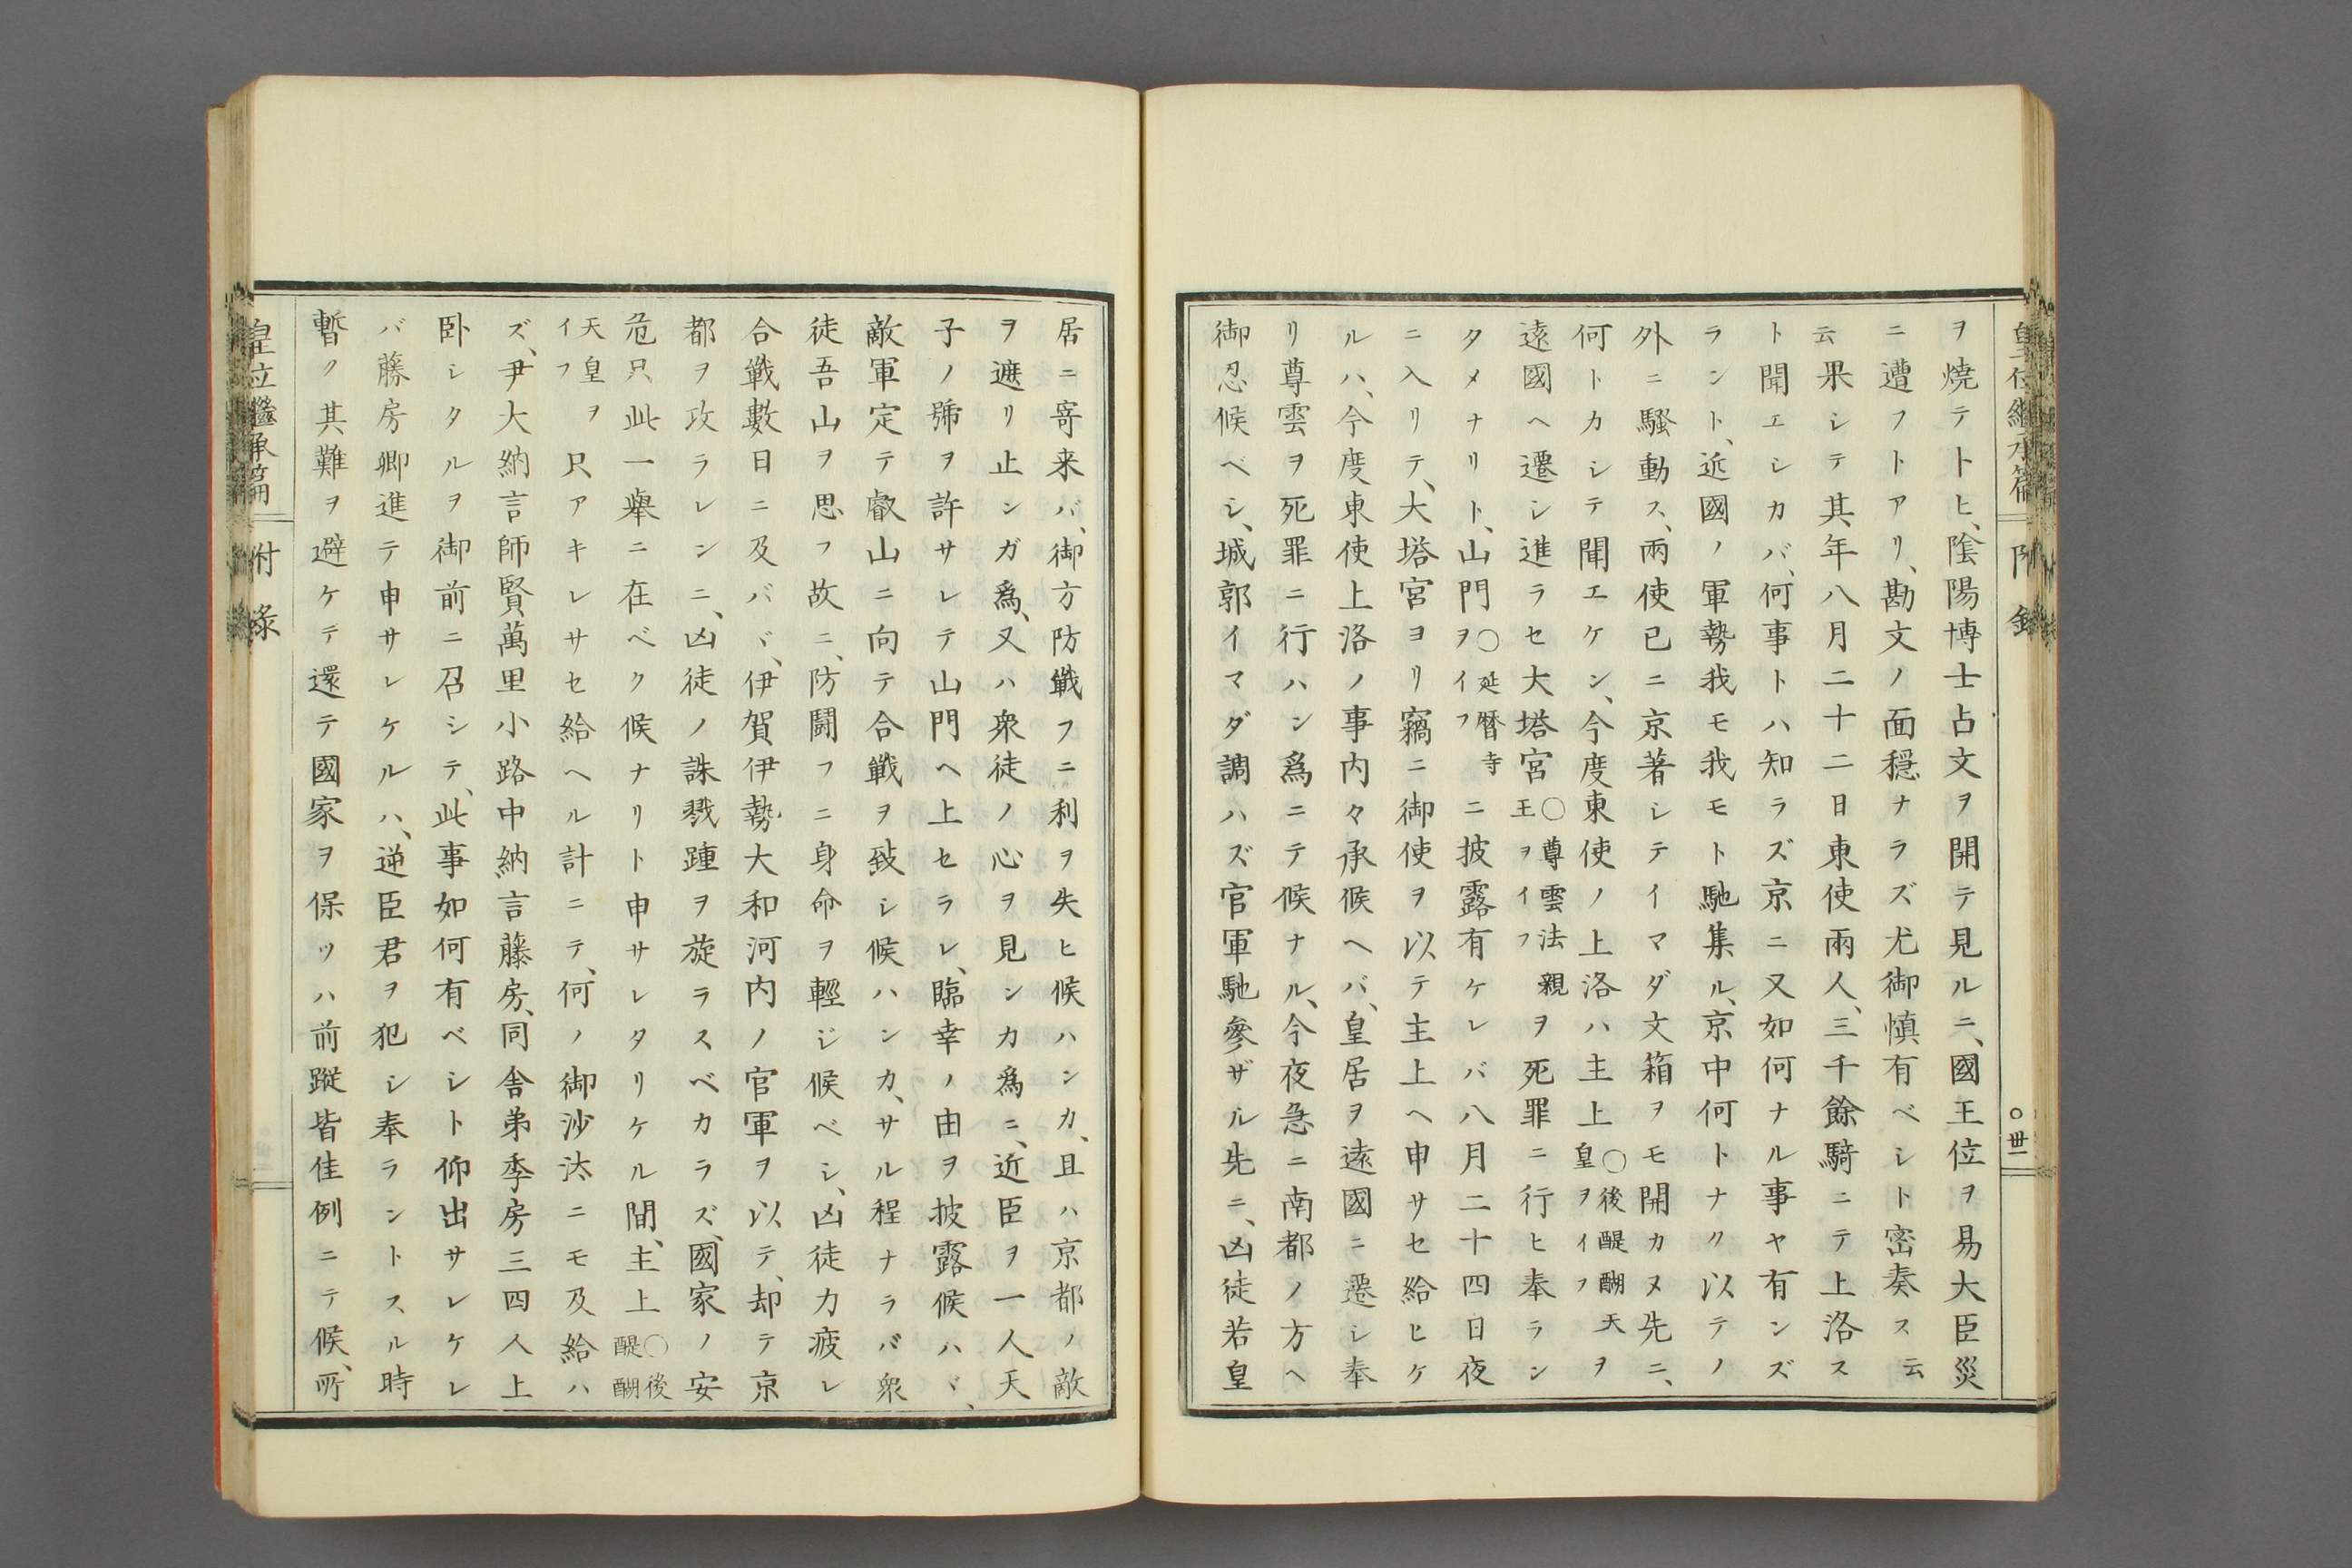 ヲ燒テトヒ、陰陽博士占文ヲ開テ見ルニ、國王位ヲ易大臣災
ニ遭フトアリ、勘文ノ面穩ナラズ尤御愼有ベシト密奏ス云
云果シテ其年八月二十二日東使兩人、三千餘騎ニテ上洛ス
ト聞エシカバ、何事トハ知ラズ京ニ又如何ナル事ヤ有ンズ
ラント、近國ノ軍勢我モ我モト馳集ル、京中何トナク以テノ
外ニ騷動ス、兩使已ニ京著シテイマダ文箱ヲモ開カヌ先ニ、
何トカシテ聞エケン、今度東使ノ上洛ハ主上〇後醍醐天皇ヲイフヲ
遠國ヘ遷シ進ラセ大塔宮〇尊雲法親王ヲイフヲ死罪ニ行ヒ奉ラン
タメナリト、山門〇延暦寺ヲイフニ披露有ケレバ八月二十四日夜
ニ入リテ、大塔宮ヨリ竊ニ御使ヲ以テ主上ヘ申サセ給ヒケ
ルハ、今度東使上洛ノ事内々承候ヘバ、皇居ヲ遠國ニ遷シ奉
リ尊雲ヲ死罪ニ行ハン爲ニテ候ナル、今夜急ニ南都ノ方ヘ
御忍候ベシ、城郭イマダ調ハズ官軍馳參ザル先ニ、凶徒若皇
附錄
〇丗一
居ニ寄来バ、御方防戰フニ利ヲ失ヒ候ハンカ、且ハ京都ノ敵
ヲ遮リ止ンガ爲、又ハ衆徒ノ心ヲ見ンカ爲ニ、近臣ヲ一人天
子ノ號ヲ許サレテ山門ヘ上セラレ、臨幸ノ由ヲ披露候ハヾ、
敵軍定テ叡山ニ向テ合戰ヲ致シ候ハンカ、サル程ナラバ衆
徒吾山ヲ思フ故ニ、防鬪フニ身命ヲ輕ジ候ベシ、凶徒力疲レ
合戰數日ニ及バヾ、伊賀伊勢大和河内ノ官軍ヲ以テ、却テ京
都ヲ攻ラレンニ、凶徒ノ誅戮踵ヲ旋ラスベカラズ、國家ノ安
危只此一擧ニ在ベク候ナリト申サレタリケル間、主上〇後醍醐
天皇ヲイフ只アキレサセ給ヘル計ニテ、何ノ御沙汰ニモ及給ハ
ズ、尹大納言師賢萬里小路中納言藤房、同舍弟季房三四人上
臥シタルヲ御前ニ召シテ、此事如何有ベシト仰出サレケレ
バ藤房卿進テ申サレケルハ、逆臣君ヲ犯シ奉ラントスル時
暫ク其難ヲ避ケテ還テ國家ヲ保ツハ前蹤皆佳例ニテ候、所
皇位繼承篇
附錄